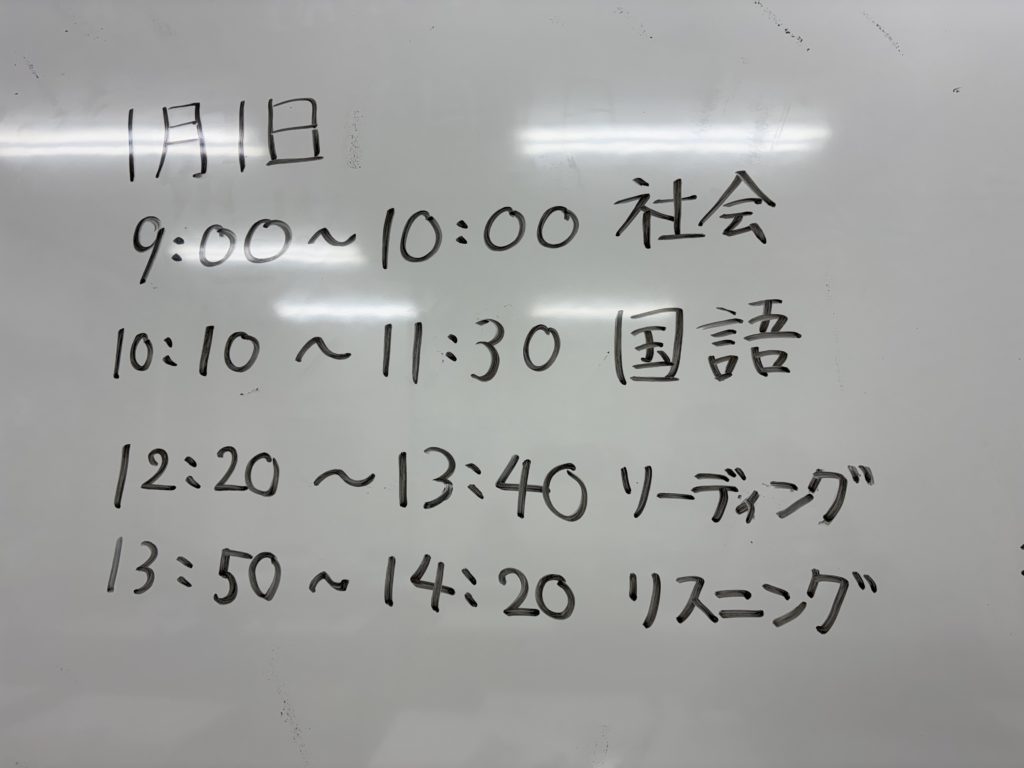 1月1日
9:00～10:00 社会
10:10～11:30 国語
12:20～13:40 リーディング
13:50～14:20 リスニング